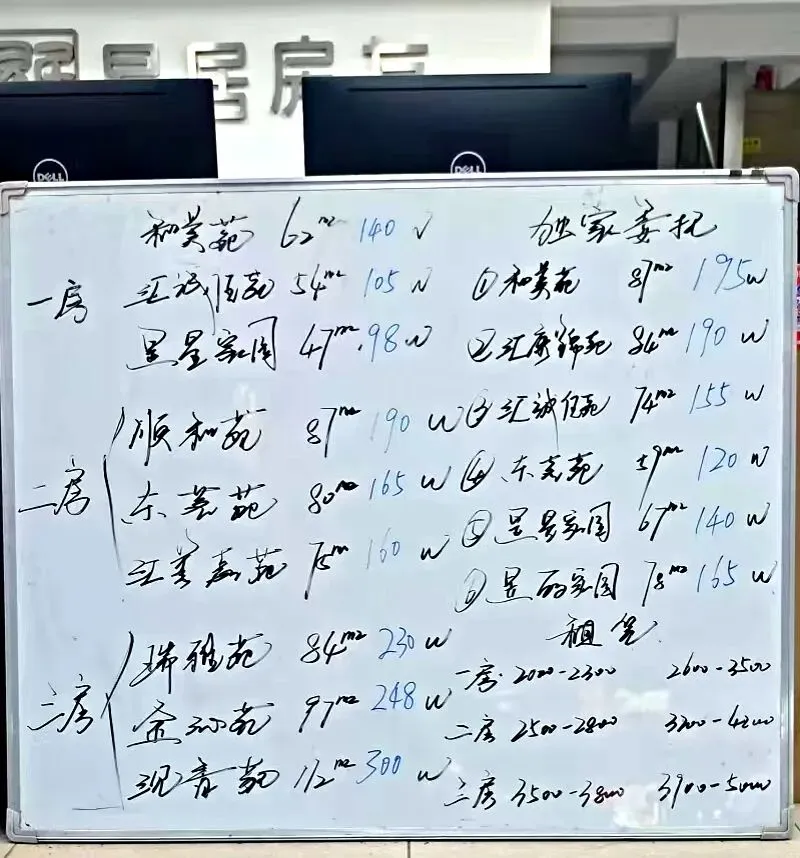 居房友
DELL
DELL
和美苑 62m² 140 W
一房 汇诚佳苑 54m² 105 W
昱星家园 47m² 98 W
二房
顺和苑 87m² 190 W
东芸苑 80m² 165 W
汇美嘉苑 75m 160 W
三房
瑞雅苑 84m² 230 W
苑 97m² 248 W
观青苑 112m² 300 W
独家委托
① 和美苑 87m² 195W
② 汇康锦苑 84m² 190 W
③ 汇诚佳苑 74m² 155 W
④ 东芸苑 59m² 120 W
⑤ 昱星家园 67m² 140 W
⑥ 昱丽家园 78m² 165 W
租赁
一房 2000-2300 2600-3500
二房 2500-2800 3200-4200
三房 3500-3800 3900-5000